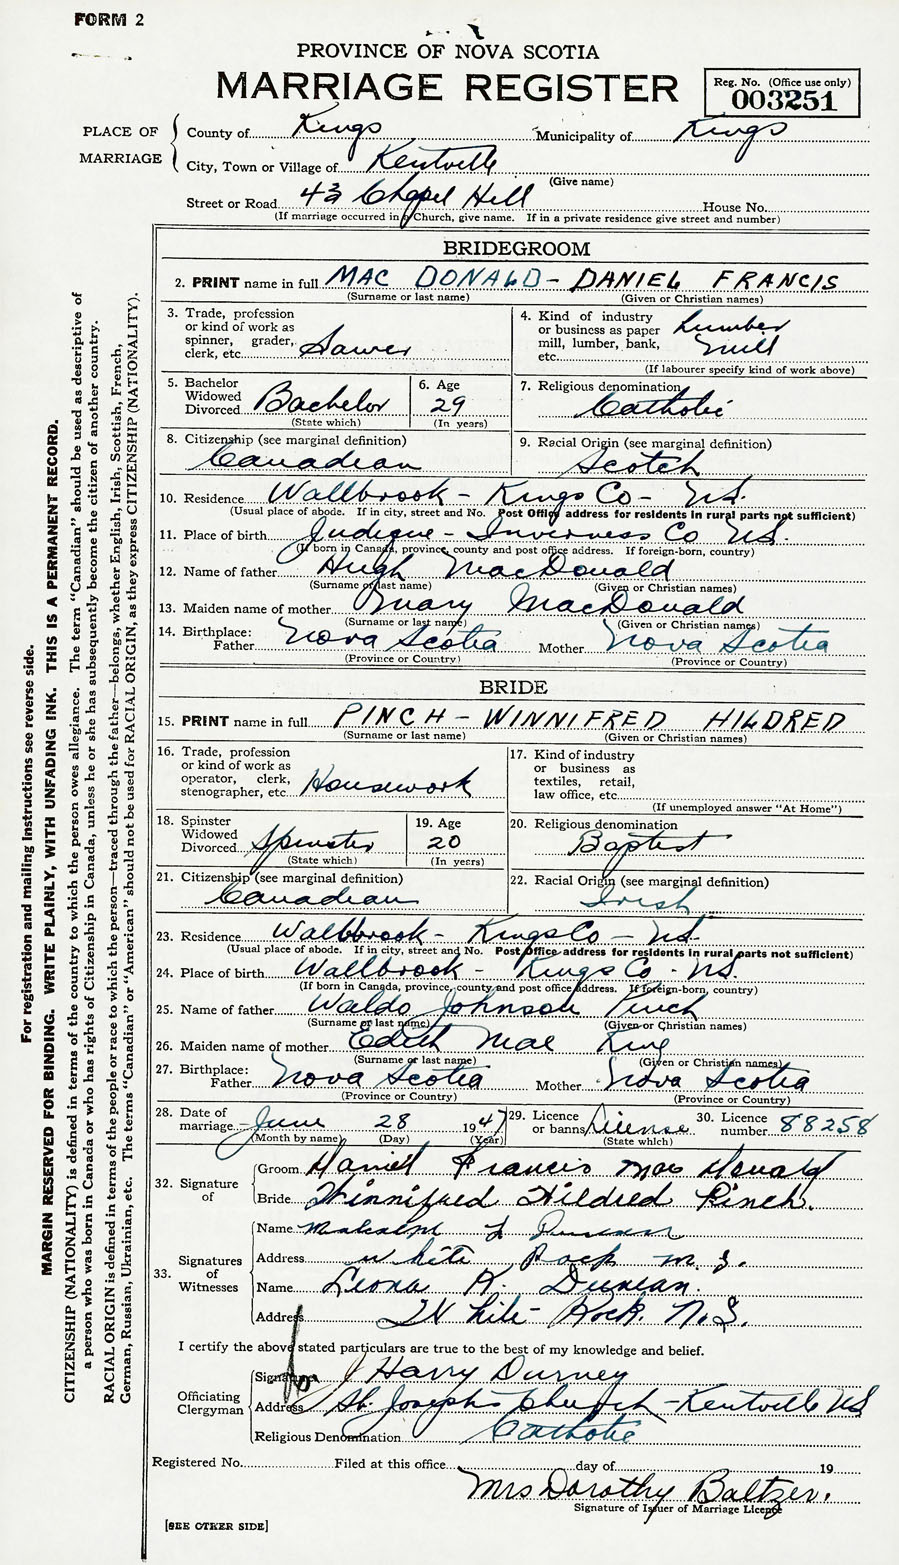 FORM 2
PROVINCE OF NOVA SCOTIA
MARRIAGE REGISTER
Reg. No. (Office use only)
003251
PLACE OF MARRIAGE
County of Kings Municipality of Kings
City, Town or Village of Kentville
(Give name)
Street or Road 43 Chapel Hill House No.
(If marriage occurred in Church, give name. If in a private residence give street and number)
BRIDEGROOM
2. PRINT name in full MAC DONALD - DANIEL FRANCIS
(Surname or last name) (Given or Christian names)
3. Trade, profession or kind of work as spinner, grader, clerk, etc. Sawer
4. Kind of industry or business as paper mill, lumber, bank, etc. Lumber Mill
(If labourer specify kind of work above)
5. Bachelor Widowed Divorced Bachelor
(State which)
6. Age 29
(In years)
7. Religious denomination Catholic
8. Citizenship (see marginal definition) Canadian
9. Racial Origin (see marginal definition) Scotch
10. Residence Wallbrook - Kings Co - N.S.
(Usual place of abode. If in city, street and No. Post Office address for residents in rural parts not sufficient)
11. Place of birth Judique - Inverness Co N.S.
(If born in Canada, province, county and post office address. If foreign-born, country)
12. Name of father Hugh MacDonald
(Surname or last name) (Given or Christian names)
13. Maiden name of mother Mary MacDonald
(Surname or last name) (Given or Christian names)
14. Birthplace: Father Nova Scotia Mother Nova Scotia
(Province or Country) (Province or Country)
BRIDE
15. PRINT name in full PINCH - WINNIFRED HILDRED
(Surname or last name) (Given or Christian names)
16. Trade, profession or kind of work as operator, clerk, stenographer, etc. Housework
17. Kind of industry or business as textiles, retail, law office, etc.
(If unemployed answer "At Home")
18. Spinster Widowed Divorced Spinster
(State which)
19. Age 20
(In years)
20. Religious denomination Baptist
21. Citizenship (see marginal definition) Canadian
22. Racial Origin (see marginal definition) Irish
23. Residence Wallbrook - Kings Co - N.S.
(Usual place of abode. If in city, street and No. Post Office address for residents in rural parts not sufficient)
24. Place of birth Wallbrook - Kings Co - N.S.
(If born in Canada, province, county and post office address. If foreign-born, country)
25. Name of father Waldo Johnson Pinch
(Surname or last name) (Given or Christian names)
26. Maiden name of mother Edith Mae King
(Surname or last name) (Given or Christian names)
27. Birthplace: Father Nova Scotia Mother Nova Scotia
(Province or Country) (Province or Country)
28. Date of marriage June 28 1947
(Month by name) (Day) (Year)
29. Licence or banns License
(State which)
30. Licence number 88258
32. Signature of
Groom Daniel Francis MacDonald
Bride Winnifred Hildred Pinch.
33. Signatures of Witnesses
Name Malcolm L Duncan
Address White Rock N.S.
Name Leona R. Duncan.
Address White Rock. N.S.
I certify the above stated particulars are true to the best of my knowledge and belief.
Officiating Clergyman
Signature J Harry Durney
Address St. Joseph's Church - Kentville NS
Religious Denomination Catholic
Registered No. Filed at this office day of 19
Mrs Dorothy Baltzer.
Signature of Issuer of Marriage Licence
[SEE OTHER SIDE]
For registration and mailing instructions see reverse side.
MARGIN RESERVED FOR BINDING. WRITE PLAINLY, WITH UNFADING INK. THIS IS A PERMANENT RECORD.
CITIZENSHIP (NATIONALITY) is defined in terms of the country to which the person owes allegiance. The term "Canadian" should be used as descriptive of
a person who was born in Canada or who has rights of Citizenship in Canada, unless he or she has subsequently become the citizen of another country.
RACIAL ORIGIN is defined in terms of the people or race to which the person—traced through the father—belongs, whether English, Irish, Scottish, French,
German, Russian, Ukrainian, etc. The terms "Canadian" or "American" should not be used for RACIAL ORIGIN, as they express CITIZENSHIP (NATIONALITY).